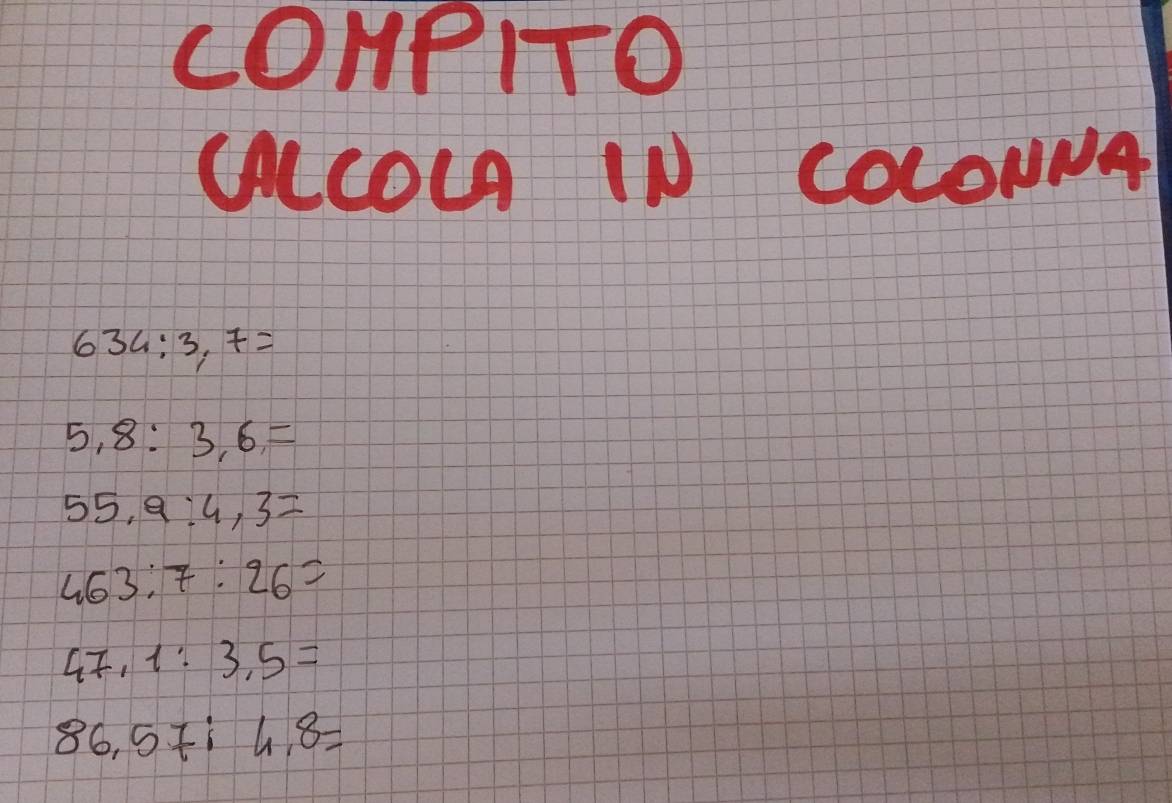 COMPITO
CALCOLA IN COLONNA
634:3,7=
5,8: 3,6=
55,9:4,3=
463:7:26=
47,1: 3,5=
86,57: 4,8=